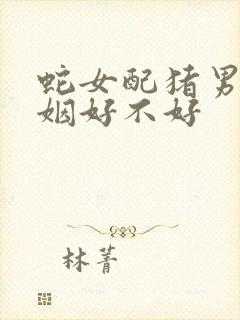 蛇女配猪男
姻好不好
林菁